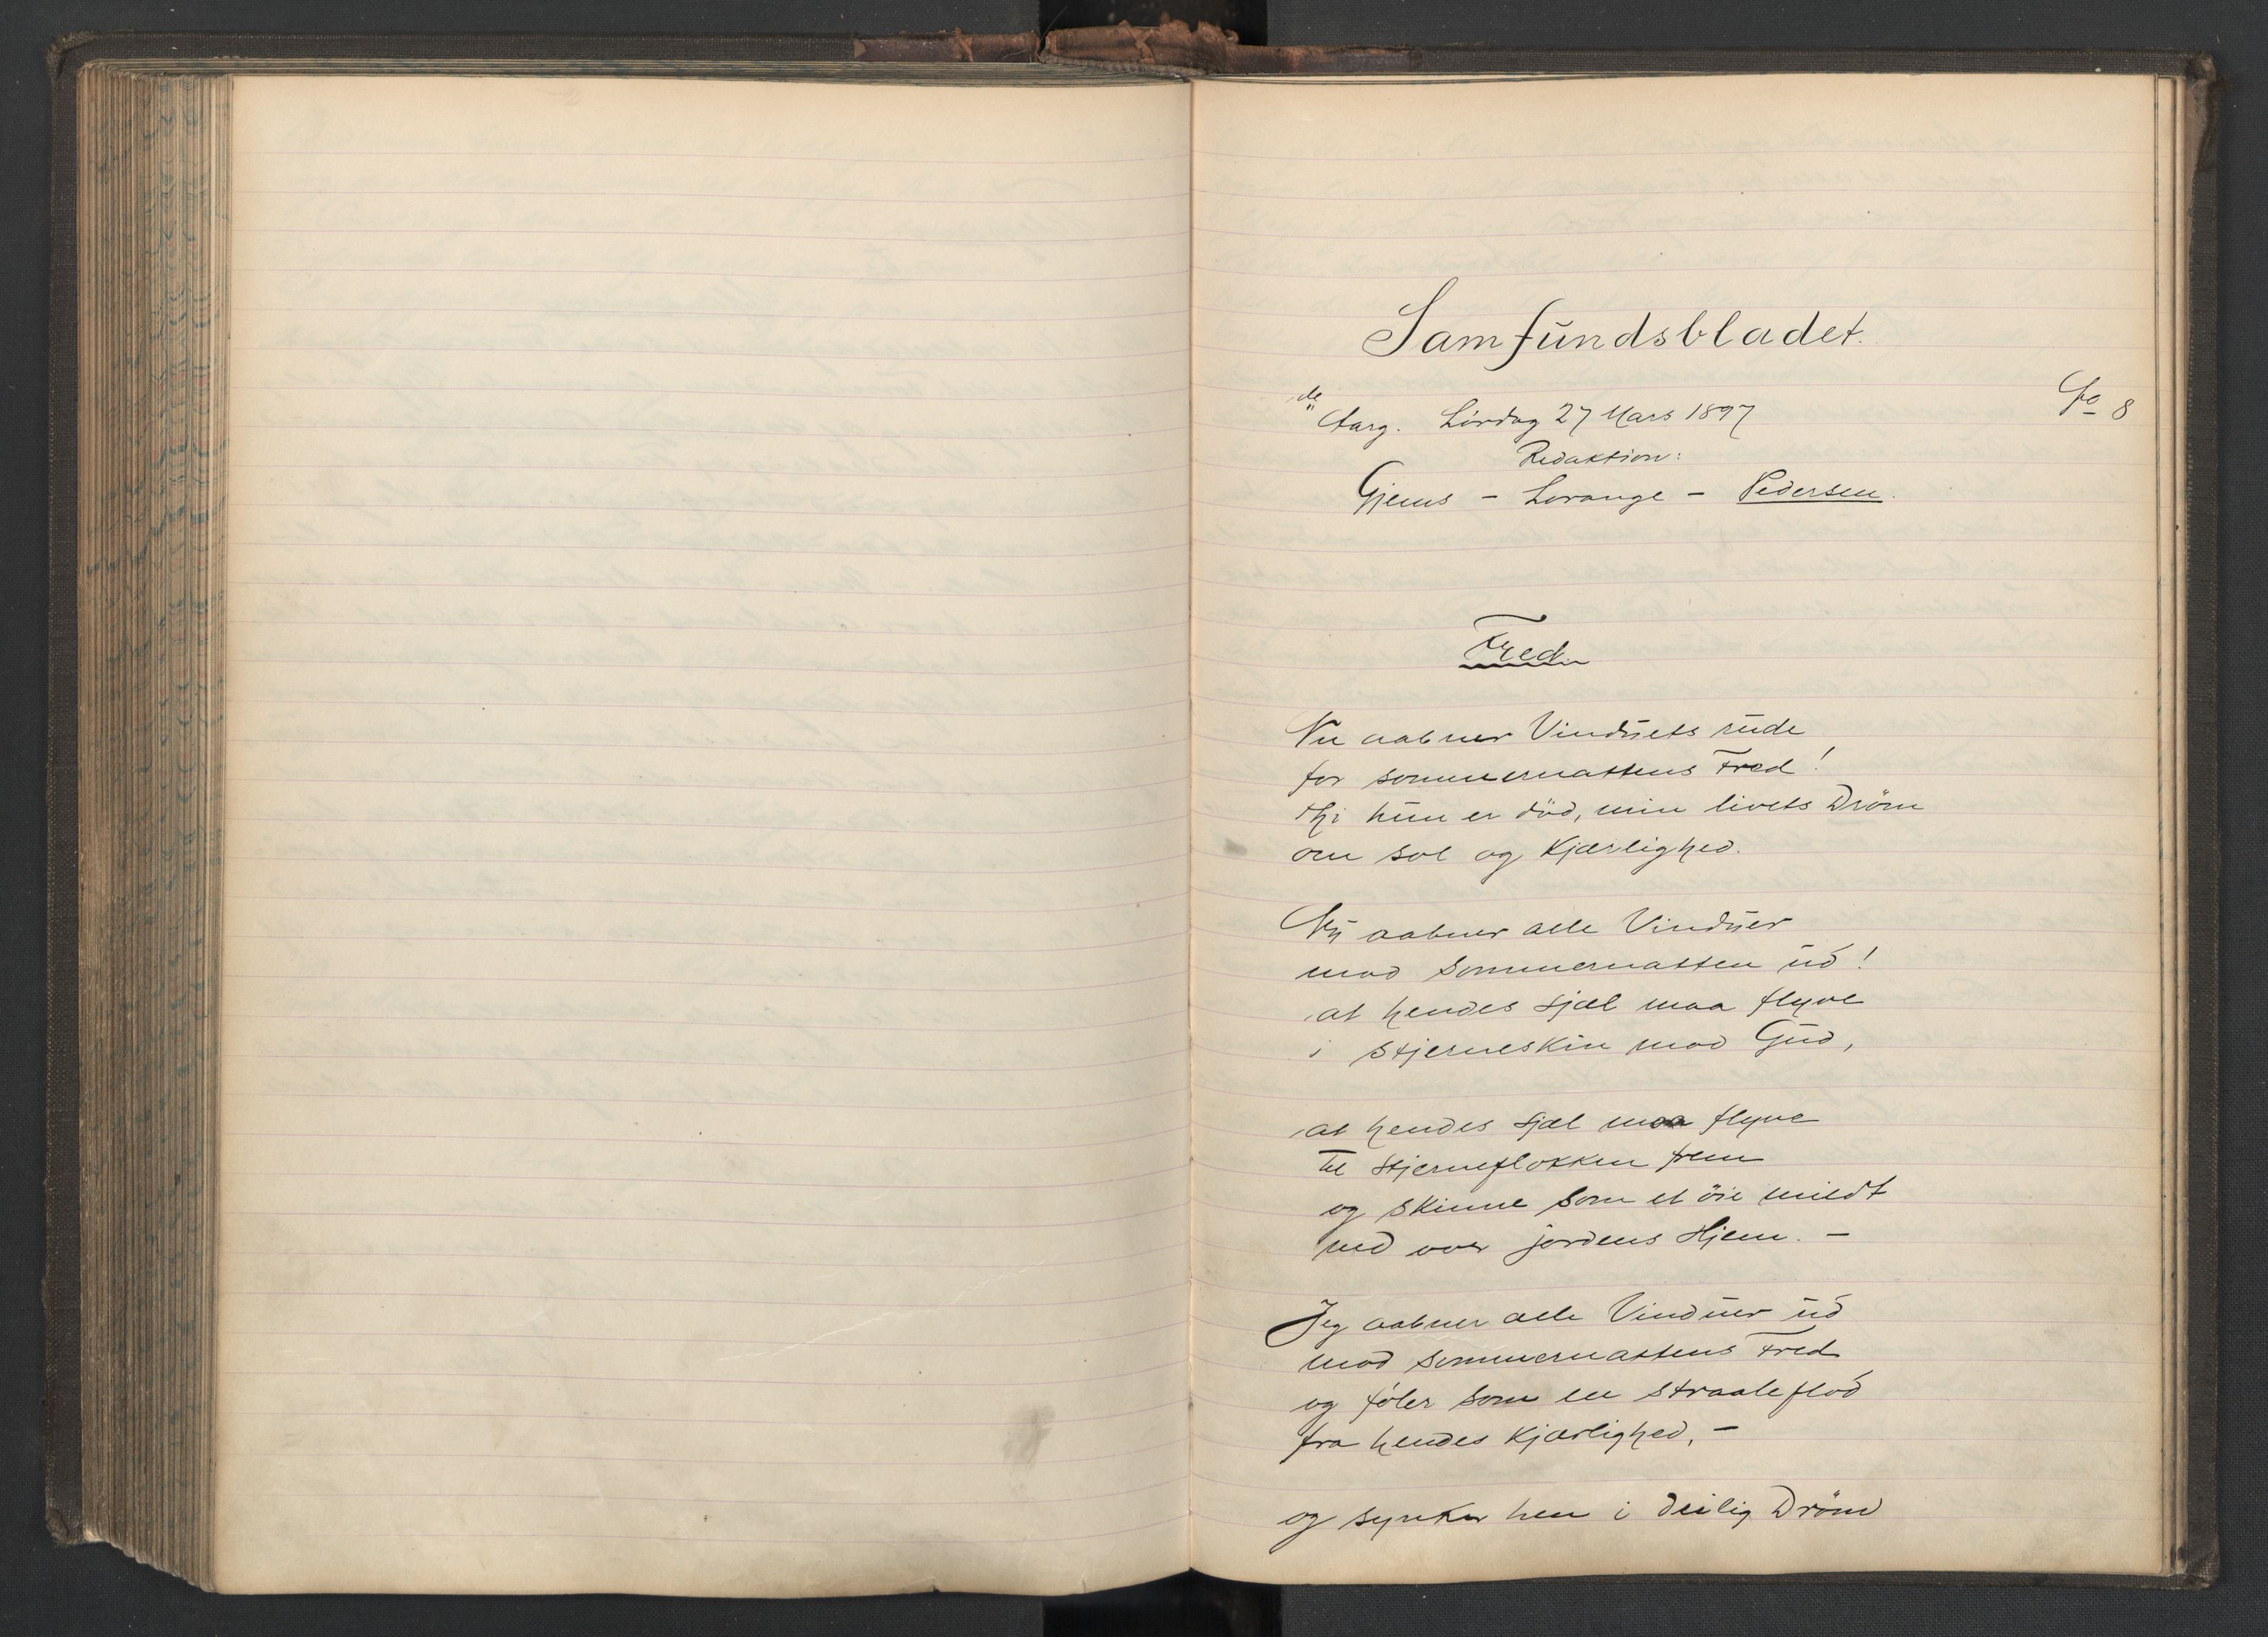 Samfundsbladet.
de Aarg. Lördag 27 Mars 1897 No 8
Redaktion:
Gjems - Lorange - Pedersen.
Fred.
Nu aabner Vinduets rude
for sommernattens Fred!
thi hun er död, min livets Dröm
om sol og Kjærlighed.
Nu aabner alle Vinduer
mod Sommernatten ud!
at hendes sjæl maa flyve
i Stjerneskin mod Gud,
at hendes sjæl maa flyve
til Stjerneflokken frem
og skinne som et öie mildt
ned over jordens Hjem. -
Jeg aabner alle Vinduer ud
mod sommernattens Fred
og föler som en straaleflod
fra hendes Kjærlighed, -
og synker hen i deilig Dröm